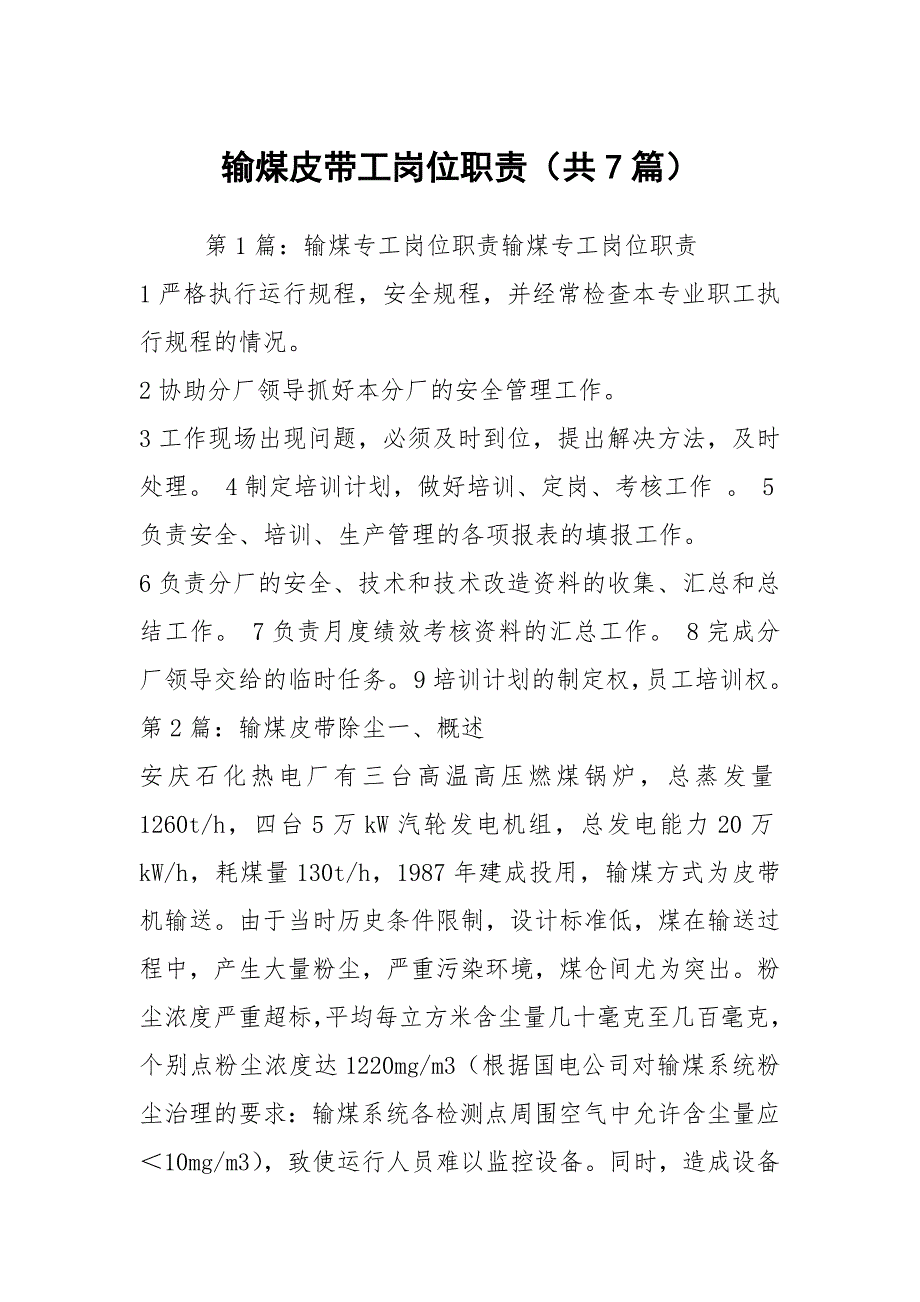 输煤皮带工岗位职责（共7篇）
第1篇：输煤专工岗位职责输煤专工岗位职责
1严格执行运行规程，安全规程，并经常检查本专业职工执
行规程的情况。
2协助分厂领导抓好本分厂的安全管理工作。
3工作现场出现问题，必须及时到位，提出解决方法，及时
处理。 4制定培训计划，做好培训、定岗、考核工作 。 5
负责安全、培训、生产管理的各项报表的填报工作。
6负责分厂的安全、技术和技术改造资料的收集、汇总和总
结工作。 7负责月度绩效考核资料的汇总工作。 8完成分
厂领导交给的临时任务。9培训计划的制定权,员工培训权。
第2篇：输煤皮带除尘一、概述
安庆石化热电厂有三台高温高压燃煤锅炉，总蒸发量
1260t/h，四台5万kW汽轮发电机组，总发电能力20万
kW/h，耗煤量130t/h，1987年建成投用，输煤方式为皮带
机输送。由于当时历史条件限制，设计标准低，煤在输送过
程中，产生大量粉尘，严重污染环境，煤仓间尤为突出。粉
尘浓度严重超标,平均每立方米含尘量几十毫克至几百毫克，
个别点粉尘浓度达1220mg/m3（根据国电公司对输煤系统粉
尘治理的要求：输煤系统各检测点周围空气中允许含尘量应
＜10mg/m3），致使运行人员难以监控设备。同时，造成设备